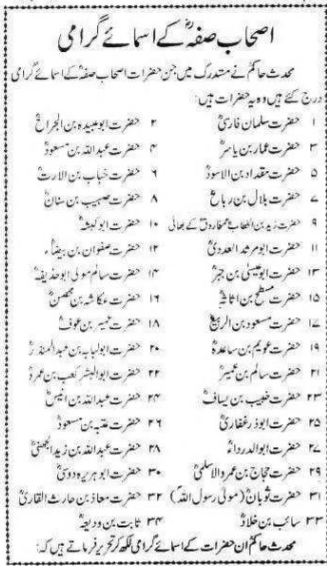 اصحاب صفہؓ کے اسمائے گرامی
محدث حاکمؒ نے مستدرک میں جن حضرات اصحاب صفہؓ کے اسمائے گرامی
درج کئے ہیں وہ یہ حضرات ہیں:
۱ حضرت سلمان فارسیؓ ۲ حضرت ابوعبیدہ بن الجراحؓ
۳ حضرت عمار بن یاسرؓ ۴ حضرت عبداللہ بن مسعودؓ
۵ حضرت مقداد بن الاسودؓ ۶ حضرت خباب بن الارتؓ
۷ حضرت بلال بن رباحؓ ۸ حضرت صہیب بن سنانؓ
۹ حضرت زید بن الخطابؓ عمر فاروقؓ کے بھائی ۱۰ حضرت ابوکبشہؓ
۱۱ حضرت ابومرثد العدویؓ ۱۲ حضرت صفوان بن بیضاء
۱۳ حضرت ابوعبسیٰ بن جبرؓ ۱۴ حضرت سالم مولی ابوحذیفہؓ
۱۵ حضرت مسطح بن اثاثہؓ ۱۶ حضرت عکاشہ بن محصنؓ
۱۷ حضرت مسعود بن الربیعؓ ۱۸ حضرت عمیر بن عوفؓ
۱۹ حضرت عویم بن ساعدہؓ ۲۰ حضرت ابولبابہ بن عبدالمنذرؓ
۲۱ حضرت سالم بن عمیرؓ ۲۲ حضرت ابوالبشر کعب بن عمروؓ
۲۳ حضرت خبیب بن یسافؓ ۲۴ حضرت عبداللہ بن انیسؓ
۲۵ حضرت ابوذر غفاریؓ ۲۶ حضرت عتبہ بن مسعودؓ
۲۷ حضرت ابوالدرداءؓ ۲۸ حضرت عبداللہ بن زید الجہنیؓ
۲۹ حضرت حجاج بن عمرو الاسلمیؓ ۳۰ حضرت ابوہریرہ دوسیؓ
۳۱ حضرت ثوبانؓ (مولی رسول اللہؐ) ۳۲ حضرت معاذ بن حارث القاریؓ
۳۳ سائب بن خلادؓ ۳۴ ثابت بن ودیعہؓ
محدث حاکمؒ ان حضرات کے اسمائے گرامی لکھ کر تحریر فرماتے ہیں کہ: